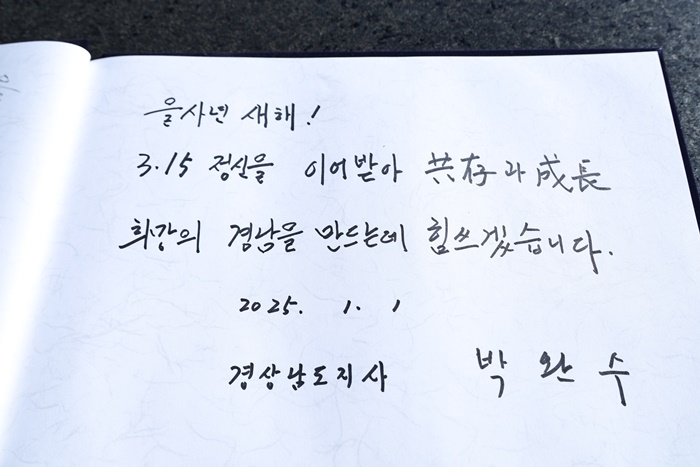 을사년 새해!
3.15 정신을 이어받아 共存과 成長
희강의 경남을 만드는데 힘쓰겠습니다.
2025. 1. 1
경상남도지사 박완수